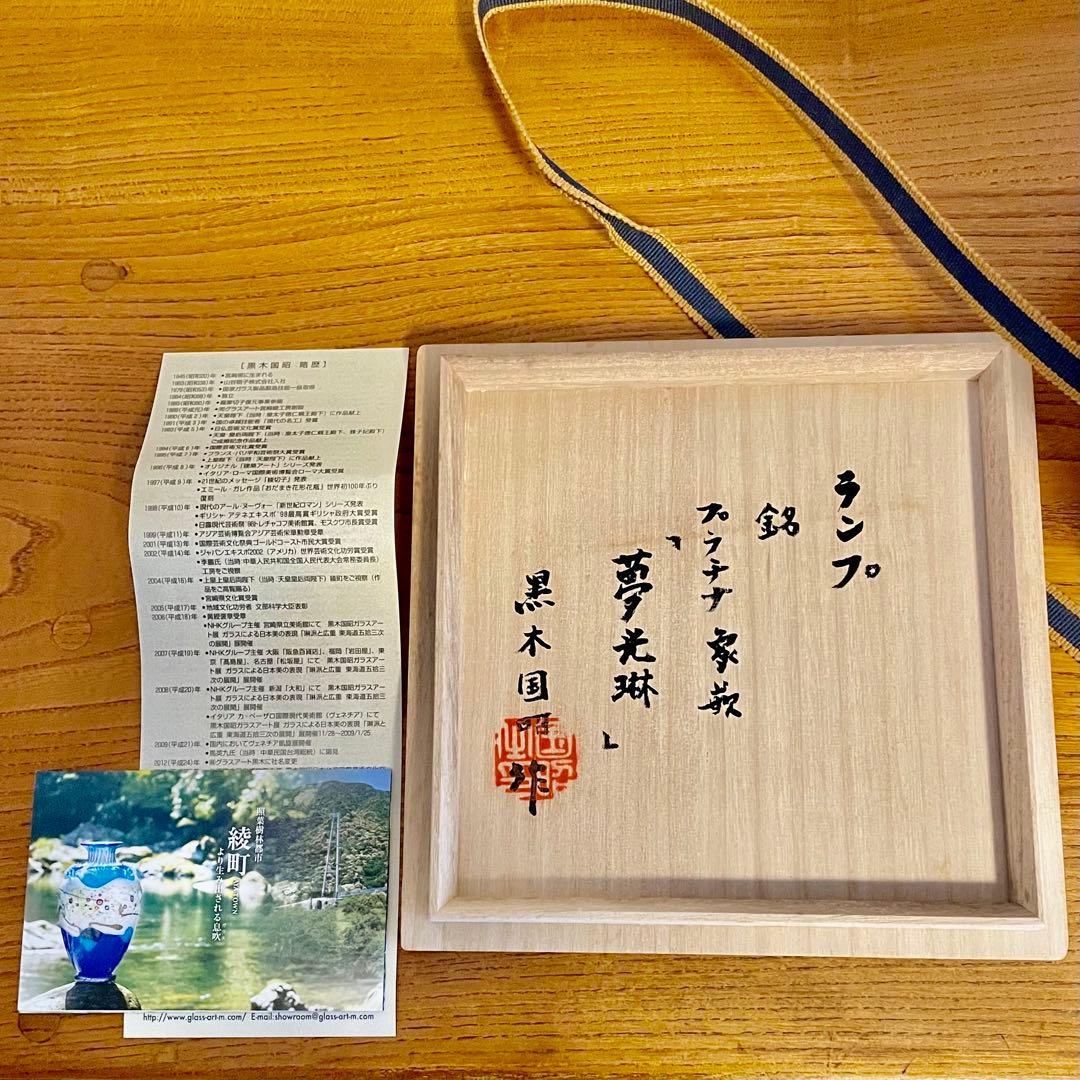 [黒木国昭 略歴]
1945(昭和20)年 •宮崎県に生まれる
1963(昭和38)年 •山谷硝子株式会社入社
1978(昭和53)年 •国家ガラス製品製造技能一級取得
1984(昭和59)年 •独立
1985(昭和60)年 •薩摩切子復元事業参画
1989(平成元)年 •㈲グラスアート宮崎綾工房創設
1990(平成2)年 •天皇陛下(当時:皇太子徳仁親王殿下)に作品献上
1991(平成3)年 •国の卓越技能者「現代の名工」受賞
1993(平成5)年 •日仏芸術文化賞受賞
•天皇・皇后両陛下(当時:皇太子徳仁親王殿下、雅子妃殿下)ご成婚記念作品献上
1994(平成6)年 •国際芸術文化賞受賞
1995(平成7)年 •フランス・パリ平和芸術祭大賞受賞
•上皇陛下(当時:天皇陛下)に作品献上
1996(平成8)年 •オリジナル「建築アート」シリーズ発表
•イタリア・ローマ国際美術博覧会ローマ大賞受賞
1997(平成9)年 •21世紀のメッセージ「綾切子」発表
•エミール・ガレ作品「おだまき花形花瓶」世界初100年ぶり
復刻
1998(平成10)年 •現代のアール・ヌーヴォー「新世紀ロマン」シリーズ発表
•ギリシャ・アテネエキスポ'98最高賞ギリシャ政府大賞受賞
•日露現代芸術祭'98トレチャコフ美術館賞、モスクワ市長賞受賞
1999(平成11)年 •アジア芸術博覧会アジア芸術栄華勲章受章
2001(平成13)年 •国際芸術文化祭典ゴールドコースト市民大賞受賞
2002(平成14)年 •ジャパンエキスポ2002(アメリカ)世界芸術文化功労賞受賞
•李鵬氏(当時:中華人民共和国全国人民代表大会常務委員長)
工房をご視察
2004(平成16)年 •上皇上皇后両陛下(当時:天皇皇后両陛下)綾町をご視察(作
品をご高覧賜る)
•宮崎県文化賞受賞
2005(平成17)年 •地域文化功労者 文部科学大臣表彰
2006(平成18)年 •黄綬褒章受章
•NHKグループ主催 宮崎県立美術館にて 黒木国昭ガラスアー
ト展 ガラスによる日本美の表現「琳派と広重 東海道五拾三次
の展開」展開催
2007(平成19)年 •NHKグループ主催 大阪「阪急百貨店」、福岡「岩田屋」、東
京「髙島屋」、名古屋「松坂屋」にて 黒木国昭ガラスアー
ト展 ガラスによる日本美の表現「琳派と広重 東海道五拾三
次の展開」展開催
2008(平成20)年 •NHKグループ主催 新潟「大和」にて 黒木国昭ガラスアー
ト展 ガラスによる日本美の表現「琳派と広重 東海道五拾三次
の展開」展開催
•イタリア カ・ペーザロ国際現代美術館(ヴェネチア)にて
黒木国昭ガラスアート展 ガラスによる日本美の表現「琳派と
広重 東海道五拾三次の展開」展開催11/28〜2009/1/25
2009(平成21)年 •国内においてヴェネチア凱旋展開催
•馬英九氏(当時 中華民国台湾総統)に謁見
2012(平成24)年 •㈱グラスアート黒木に社名変更
照葉樹林都市
綾町
AYA TOWN
より生み出される息吹
http://www.glass-art-m.com/ E-mail:showroom@glass-art-m.com
ランプ
銘
プラチナ象嵌
「夢光琳」
黒木国昭作